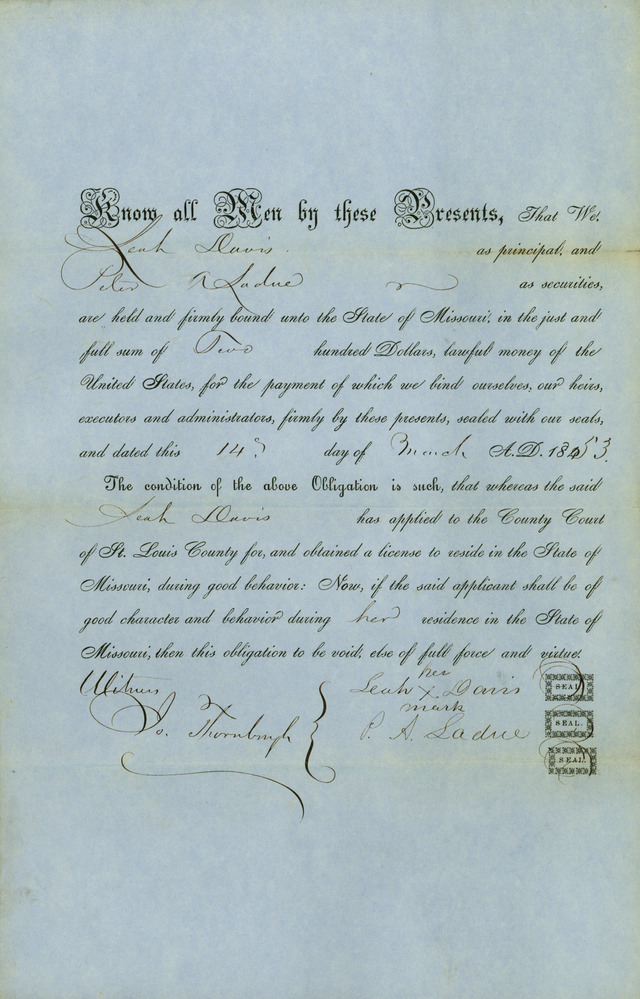 Know all Men by these Presents, That We,
Leah Davis. as principal, and
Peter A Ladue as securities,
are held and firmly bound unto the State of Missouri, in the just and
full sum of Two hundred Dollars, lawful money of the
United States, for the payment of which we bind ourselves, our heirs,
executors and administrators, firmly by these presents, sealed with our seals,
and dated this 14 day of March A.D. 1853.
The condition of the above Obligation is such, that whereas the said
Leah Davis has applied to the County Court
of St. Louis County for, and obtained a license to reside in the State of
Missouri, during good behavior: Now, if the said applicant shall be of
good character and behavior during her residence in the State of
Missouri, then this obligation to be void, else of full force and virtue.
Witness
her
Leah x Davis SEAL.
mark
Thornburgh
P. A. Ladue SEAL.
SEAL.